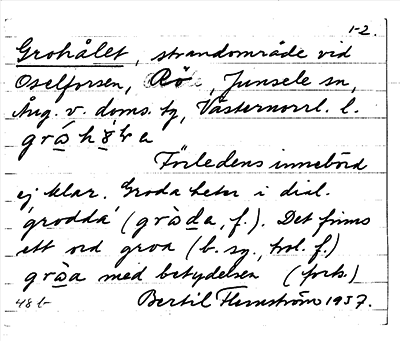 1-2.
Grohålet, strandområde vid
Oselforsen, Rö, Junsele sn,
Ång. v. doms. tg, Västernorrl. l.
Förledens innebörd
ej klar. Groda heter i dial.
'grodda' (gràda, f.). Det finns
ett ord groa (b. sg., trol. f.)
gràa med betydelsen (forts.)
48 b Bertil Flemström 1937.